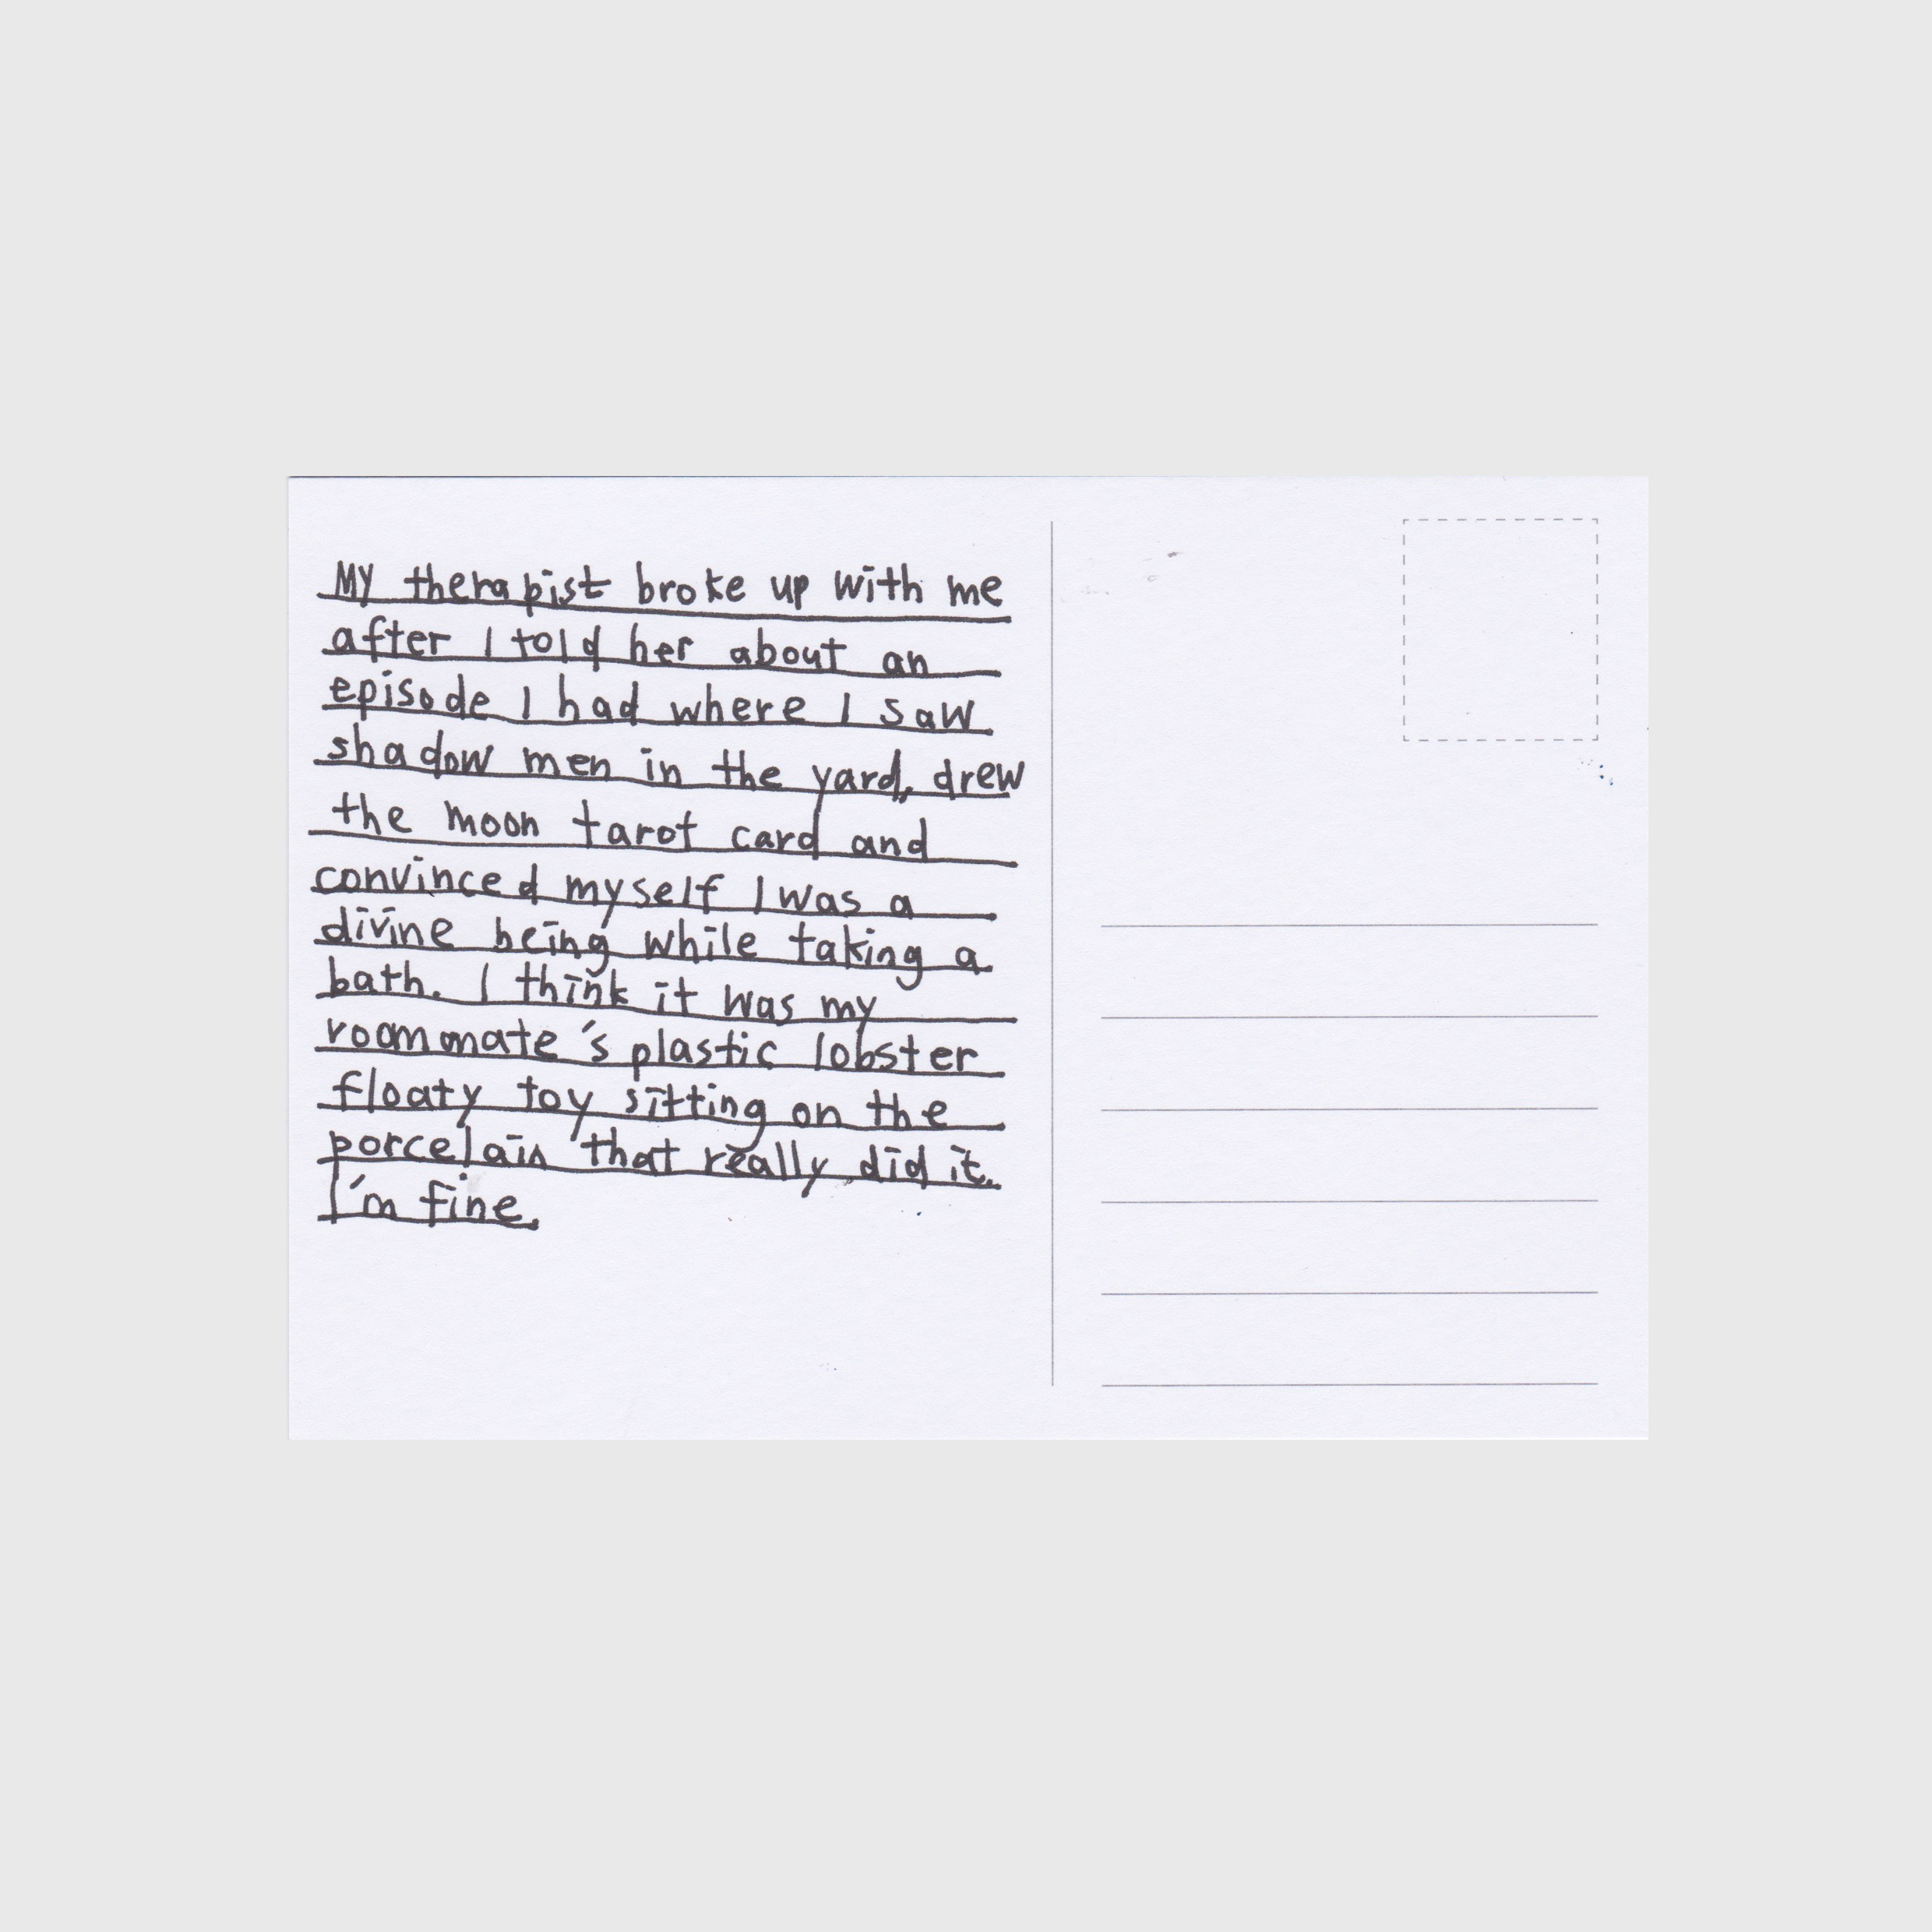 My therapist broke up with me
after I told her about an
episode I had where I saw
shadow men in the yard, drew
the moon tarot card and
convinced myself I was a
divine being while taking a
bath. I think it was my
roommate's plastic lobster
floaty toy sitting on the
porcelain that really did it.
I'm fine.